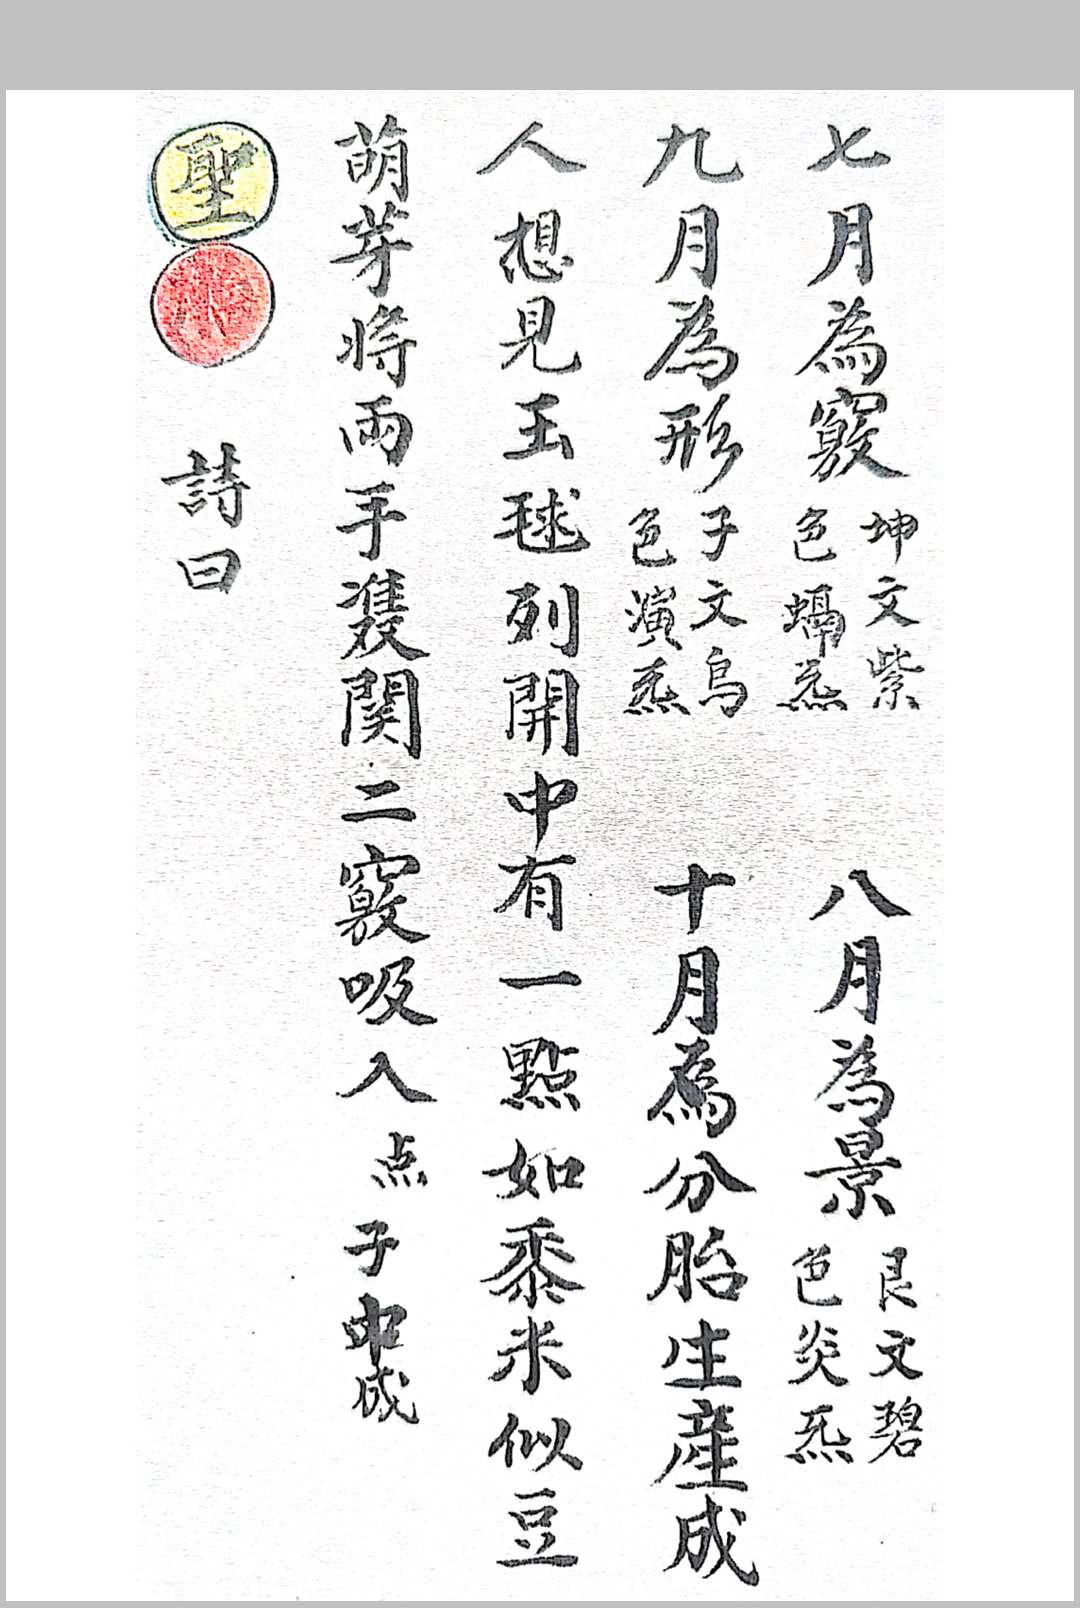 七月為竅 坤文紫色蝹炁 八月為景 艮文碧色炎炁
九月為形 子文烏色演炁 十月為分胎生產成
人想見玉毬列開中有一點如黍米似豆
萌芽將兩手𩀱関二竅吸入点子中成
聖 詩曰